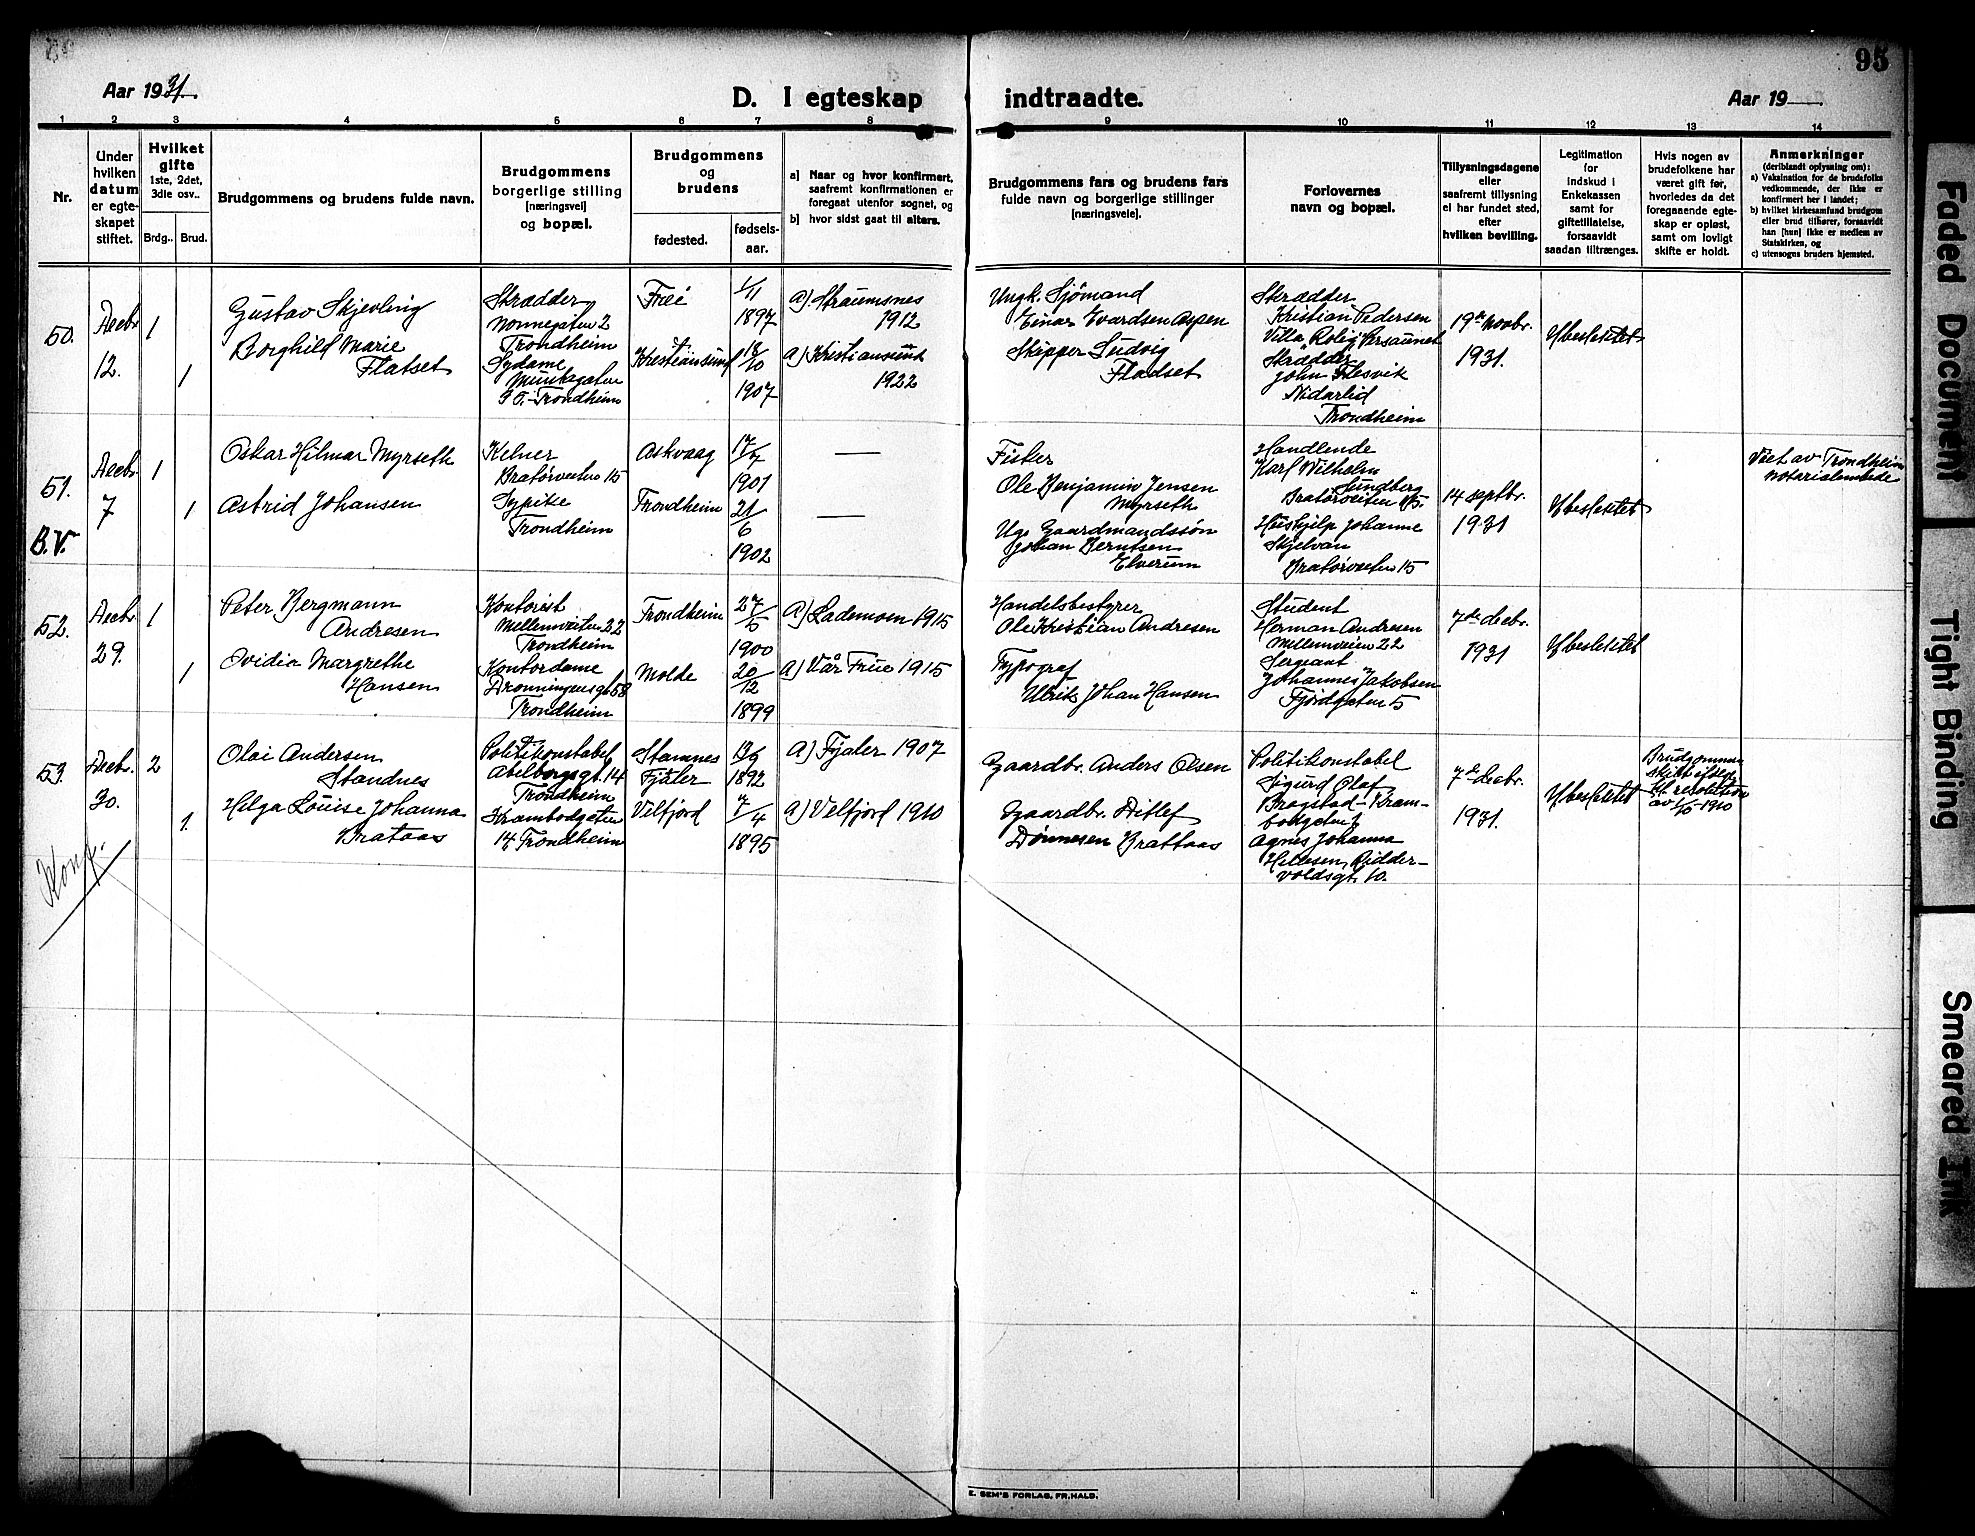 95
Aar 1931.
D. I egteskap indtraadte.
Aar 19
1 2 3 4 5 6 7 8 9 10 11 12 13 14
Nr.
Under
hvilken
datum
er egte-
skapet
stiftet.
Hvilket
gifte
1ste, 2det,
3die osv..
Brdg.. Brud.
Brudgommens og brudens fulde navn.
Brudgommens
borgerlige stilling
[næringsvei]
og bopæl.
Brudgommens
og
brudens
fødested.
fødsels-
aar.
a) Naar og hvor konfirmert,
saafremt konfirmationen er
foregaat utenfor sognet, og
b) hvor sidst gaat til alters.
Brudgommens fars og brudens fars
fulde navn og borgerlige stillinger
[næringsveie].
Forlovernes
navn og bopæl.
Tillysningsdagene
eller
saafremt tillysning
ei har fundet sted,
efter
hvilken bevilling.
Legitimation
for
indskud i
Enkekassen
samt for
giftetillatelse,
forsaavidt
saadan tiltrænges.
Hvis nogen av
brudefolkene har
været gift før,
hvorledes da det
foregaaende egte-
skap er opløst,
samt om lovligt
skifte er holdt.
Anmerkninger
(deriblandt oplysning om):
a) Vaksination for de brudefolks
vedkommende, der ikke er
konfirmert her i landet;
b) hvilket kirkesamfund brudgom
eller brud tilhører, forsaavidt
han [hun] ikke er medlem av
Statskirken, og
c) utensogns bruders hjemsted.
50.
Decbr
12.
1
1
Gustav Skjevling
Borghild Marie
Flatset
Skrædder
Nonnegaten 2
Trondheim
Sydame
Munkegaten
Trondheim
Frei
Kristiansund
1/11
1897
13/10
1907
a) Straumsnes
1912
a) Kristiansund
1922
Ungk. Sjömand
Einar Evardsen Aspen
Skipper Ludvig
Fladset
Skrædder
Kristian Pedersen
Villa "Rolig" Persaunet
Skrædder
John Flesvik
Nidarlid
Trondheim
19de novbr.
1931.
Ubeslektet
51.
B.V.
Decbr
7
1
1
Oskar Hilmar Myrseth
Astrid Johansen
Kelner
Bratørveiten 15
Sypike
Trondheim
Askvaag
Trondheim
17/7
1901
21/6
1902
—
—
Fisker
Ole Benjamin Jensen
Myrseth
Ug. Gaardmandssøn
Johan Berntsen
Elverum
Handlende
Karl Wilhelm
Sundberg
Bratørveiten 15.
Hushjelp Johanne
Skjelvan
Bratørveiten 15
14 septbr.
1931
Ubeslektet
Viet av Trondheim
Notarialembede
52.
Decbr
29.
1
1
Peter Bergmann
Andresen
Ovidia Margrethe
Hansen
Kontorist
Mellemveien 22
Trondheim
Kontordame
Dronningensgt. 58
Trondheim
Trondheim
Molde
27/5
1900
20/12
1899
a) Lademoen 1915
a) Vår Frue 1915
Handelsbestyrer
Ole Kristian Andresen
Typograf
Ulrik Johan Hansen
Student
Herman Andresen
Mellemveien 22
Sergeant
Johannes Jakobsen
Fjordgaten 5
7de decbr.
1931
Ubeslektet
53.
Decbr.
30.
2
1.
Olai Andersen
Standnes
Helga Louise Johanna
Brataas
Politikonstabel
Abelborgsgt. 14
Trondheim
Krambodgaten
14 Trondheim
Stamnes
Fjaler
Velfjord
13/9
1892
7/4
1895
a) Fjaler 1907
a) Velfjord 1910
Gaardbr. Anders Olsen
Gaardbr. Ditlef
Dønnesen Brattaas
Politikonstabel
Sigurd Olaf
Bragstad - Kram-
bodgaten
Agnes Johanna
Hellesen, Ridder-
voldsgt. 10.
7de decbr.
1931.
Ubeslektet
Brudgommen
skilt ifølge
resolution
av
Konf.
E. SEM'S FORLAG, FR.HALD.
Faded Document
Tight Binding
Smeared Ink